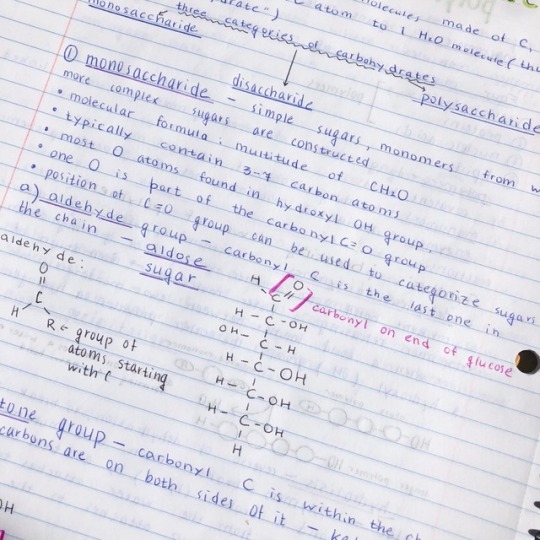 molecules made of C,
rate")
C atom to 1 H2O molecule (thu
three categories of carbohydrates
monosaccharide
disaccharide
polysaccharide
① monosaccharide – simple sugars, monomers from w
more complex sugars are constructed
• molecular formula: multitude of CH2O
• typically contain 3-7 carbon atoms
• most O atoms found in hydroxyl OH group.
• one O is part of the carbonyl C=O group
• position of C=O group can be used to categorize sugars
a) aldehyde group – carbonyl C is the last one in
the chain – aldose
sugar
aldehyde:
O
C
H
R = group of
atoms starting
with C
H O
C
carbonyl on end of glucose
H – C – OH
OH – C – H
H – C – OH
H – C – OH
H – C – OH
H
tone group – carbonyl C is within the ch
carbons are on both sides of it – ke
OH